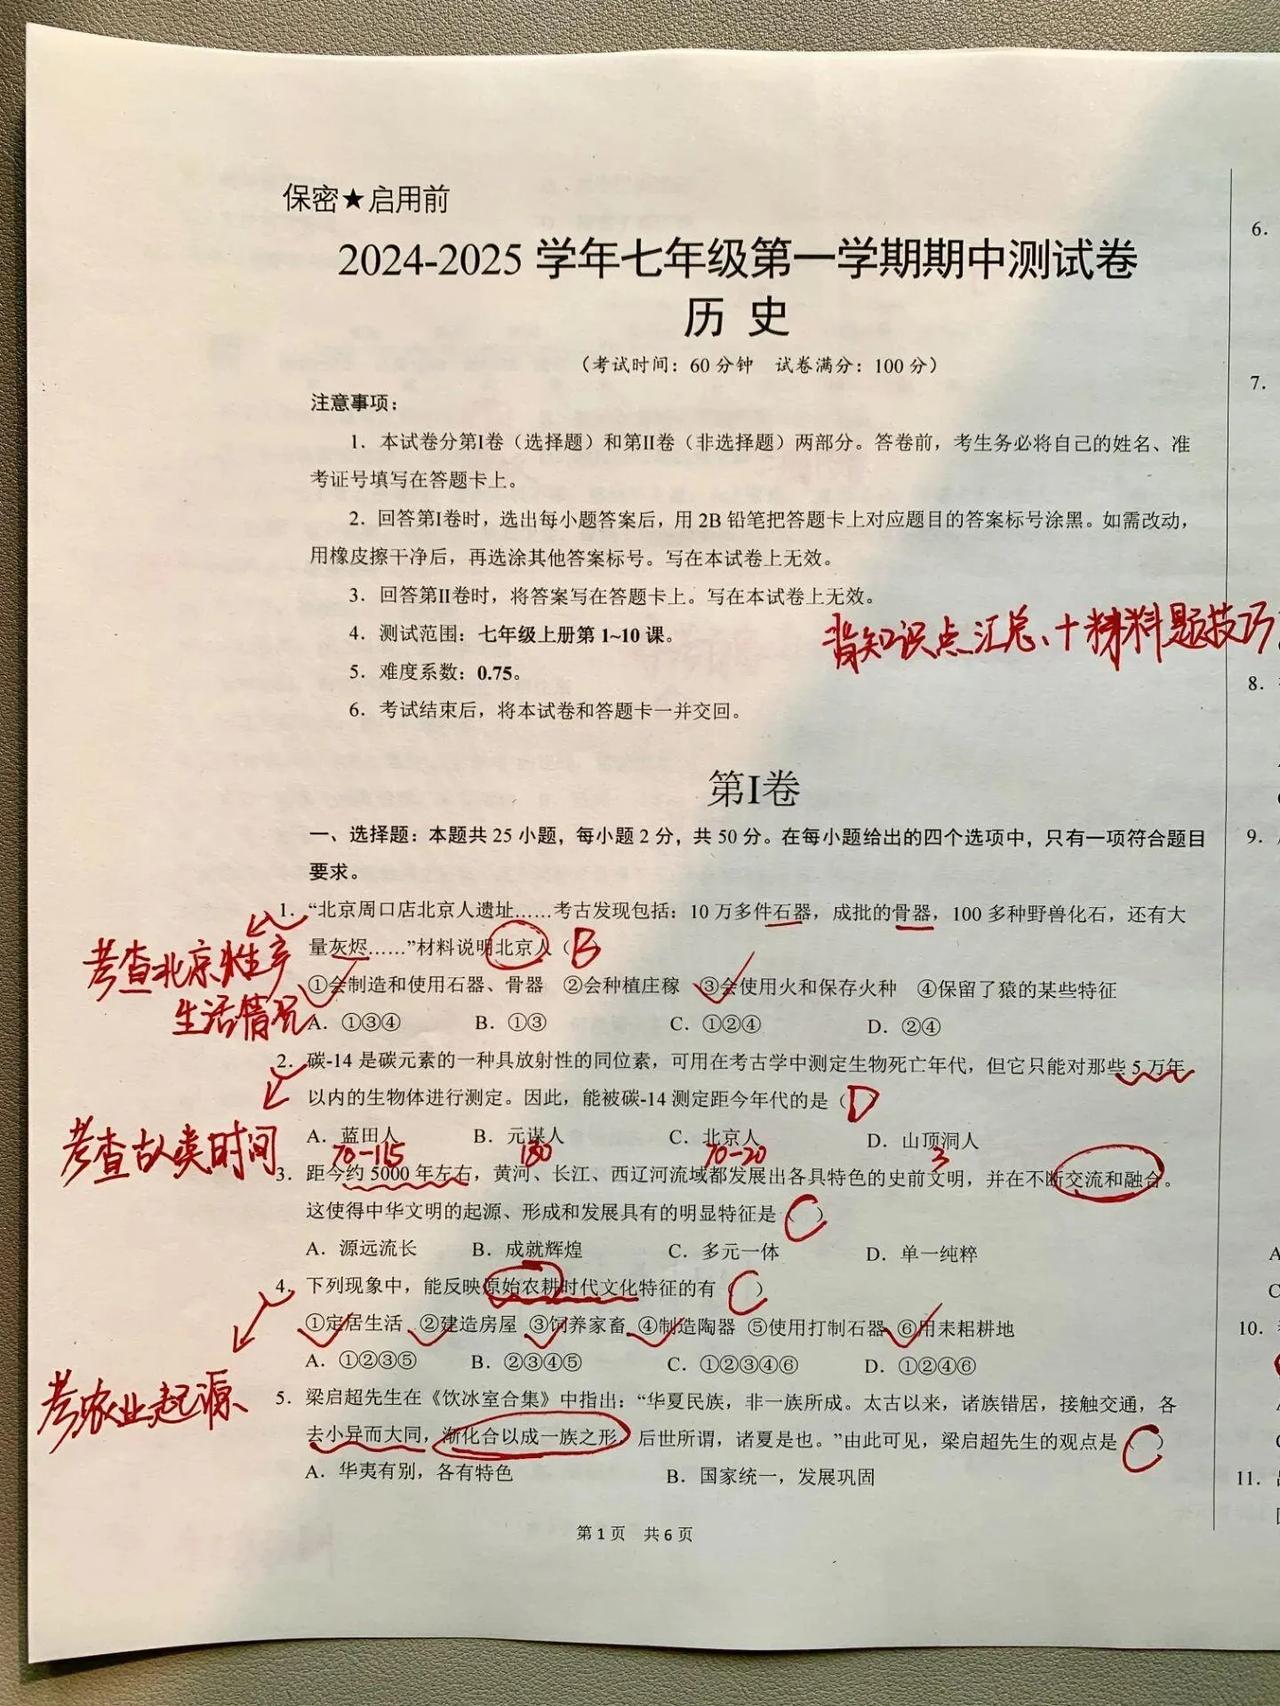 保密★启用前
2024-2025 学年七年级第一学期期中测试卷
历 史
（考试时间：60 分钟　试卷满分：100 分）
注意事项：
1．本试卷分第I卷（选择题）和第II卷（非选择题）两部分。答卷前，考生务必将自己的姓名、准
考证号填写在答题卡上。
2．回答第I卷时，选出每小题答案后，用 2B 铅笔把答题卡上对应题目的答案标号涂黑。如需改动，
用橡皮擦干净后，再选涂其他答案标号。写在本试卷上无效。
3．回答第II卷时，将答案写在答题卡上。写在本试卷上无效。
4．测试范围：七年级上册第 1~10 课。
背知识点汇总、十材料题技巧
5．难度系数：0.75。
6．考试结束后，将本试卷和答题卡一并交回。
第I卷
一、选择题：本题共 25 小题，每小题 2 分，共 50 分。在每小题给出的四个选项中，只有一项符合题目
要求。
1．“北京周口店北京人遗址……考古发现包括：10 万多件石器，成批的骨器，100 多种野兽化石，还有大
量灰烬……”材料说明北京人（B
考查北京人生产
生活情况
①会制造和使用石器、骨器　②会种植庄稼　③会使用火和保存火种　④保留了猿的某些特征
A．①③④　B．①③　C．①②④　D．②④
2．碳-14 是碳元素的一种具放射性的同位素，可用在考古学中测定生物死亡年代，但它只能对那些 5 万年
以内的生物体进行测定。因此，能被碳-14 测定距今年代的是（D）
考查古人类时间
A．蓝田人　B．元谋人　C．北京人　D．山顶洞人
70-115　180　70-20　3
3．距今约 5000 年左右，黄河、长江、西辽河流域都发展出各具特色的史前文明，并在不断交流和融合。
这使得中华文明的起源、形成和发展具有的明显特征是（C）
A．源远流长　B．成就辉煌　C．多元一体　D．单一纯粹
4．下列现象中，能反映原始农耕时代文化特征的有（C）
①定居生活　②建造房屋　③饲养家畜　④制造陶器　⑤使用打制石器　⑥用耒耜耕地
A．①②③⑤　B．②③④⑤　C．①②③④⑥　D．①②④⑥
考农业起源、
5．梁启超先生在《饮冰室合集》中指出：“华夏民族，非一族所成。太古以来，诸族错居，接触交通，各
去小异而大同，渐化合以成一族之形，后世所谓，诸夏是也。”由此可见，梁启超先生的观点是（C）
A．华夷有别，各有特色　B．国家统一，发展巩固
第 1 页　共 6 页
6．
7．
8．
9．
A
C
10．
11．